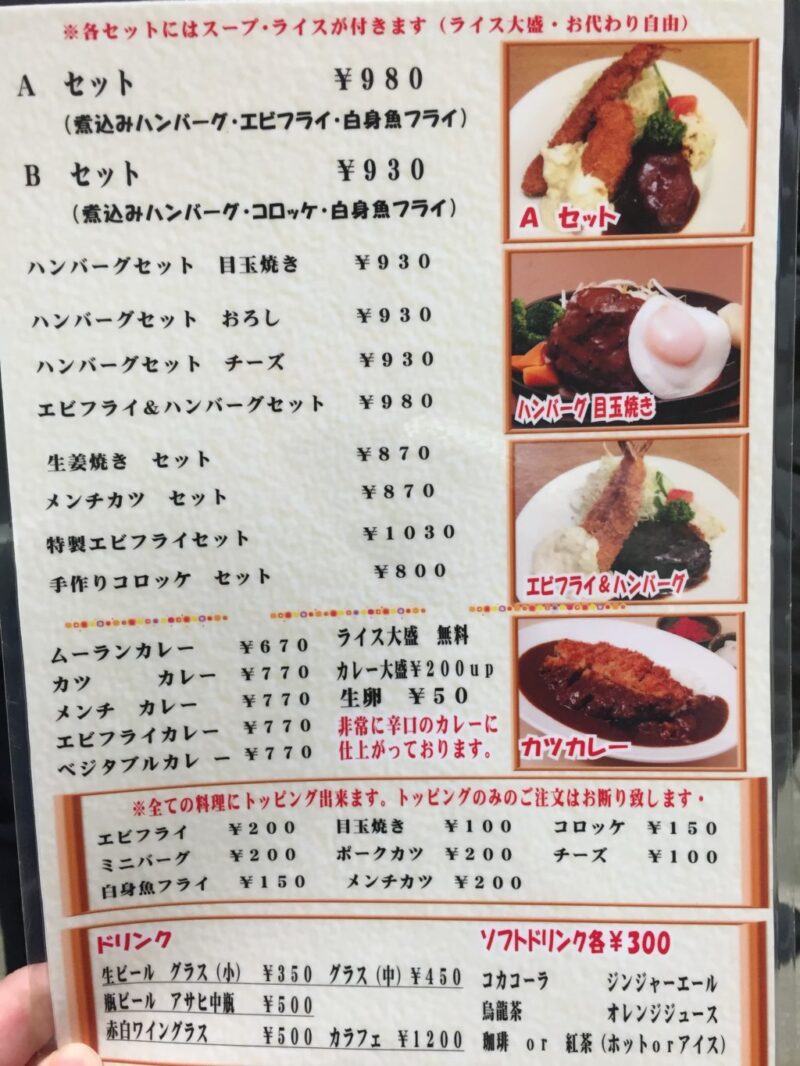 ※各セットにはスープ・ライスが付きます（ライス大盛・お代わり自由）
A セット ￥９８０
（煮込みハンバーグ・エビフライ・白身魚フライ）
B セット ￥９３０
（煮込みハンバーグ・コロッケ・白身魚フライ）
A セット
ハンバーグセット 目玉焼き ￥９３０
ハンバーグセット おろし ￥９３０
ハンバーグセット チーズ ￥９３０
エビフライ＆ハンバーグセット ￥９８０
ハンバーグ 目玉焼き
生姜焼き セット ￥８７０
メンチカツ セット ￥８７０
特製エビフライセット ￥１０３０
手作りコロッケ セット ￥８００
エビフライ＆ハンバーグ
ムーランカレー ￥６７０
カツ カレー ￥７７０
メンチ カレー ￥７７０
エビフライカレー ￥７７０
ベジタブルカレー ￥７７０
ライス大盛 無料
カレー大盛￥２００up
生卵 ￥５０
非常に辛口のカレーに
仕上がっております。
カツカレー
※全ての料理にトッピング出来ます。トッピングのみのご注文はお断り致します・
エビフライ ￥２００ 目玉焼き ￥１００ コロッケ ￥１５０
ミニバーグ ￥２００ ポークカツ ￥２００ チーズ ￥１００
白身魚フライ ￥１５０ メンチカツ ￥２００
ドリンク
生ビール グラス（小） ￥３５０ グラス（中）￥４５０
瓶ビール アサヒ中瓶 ￥５００
赤白ワイングラス ￥５００ カラフェ ￥１２００
ソフトドリンク各￥３００
コカコーラ ジンジャーエール
烏龍茶 オレンジジュース
珈琲 or 紅茶（ホットorアイス）